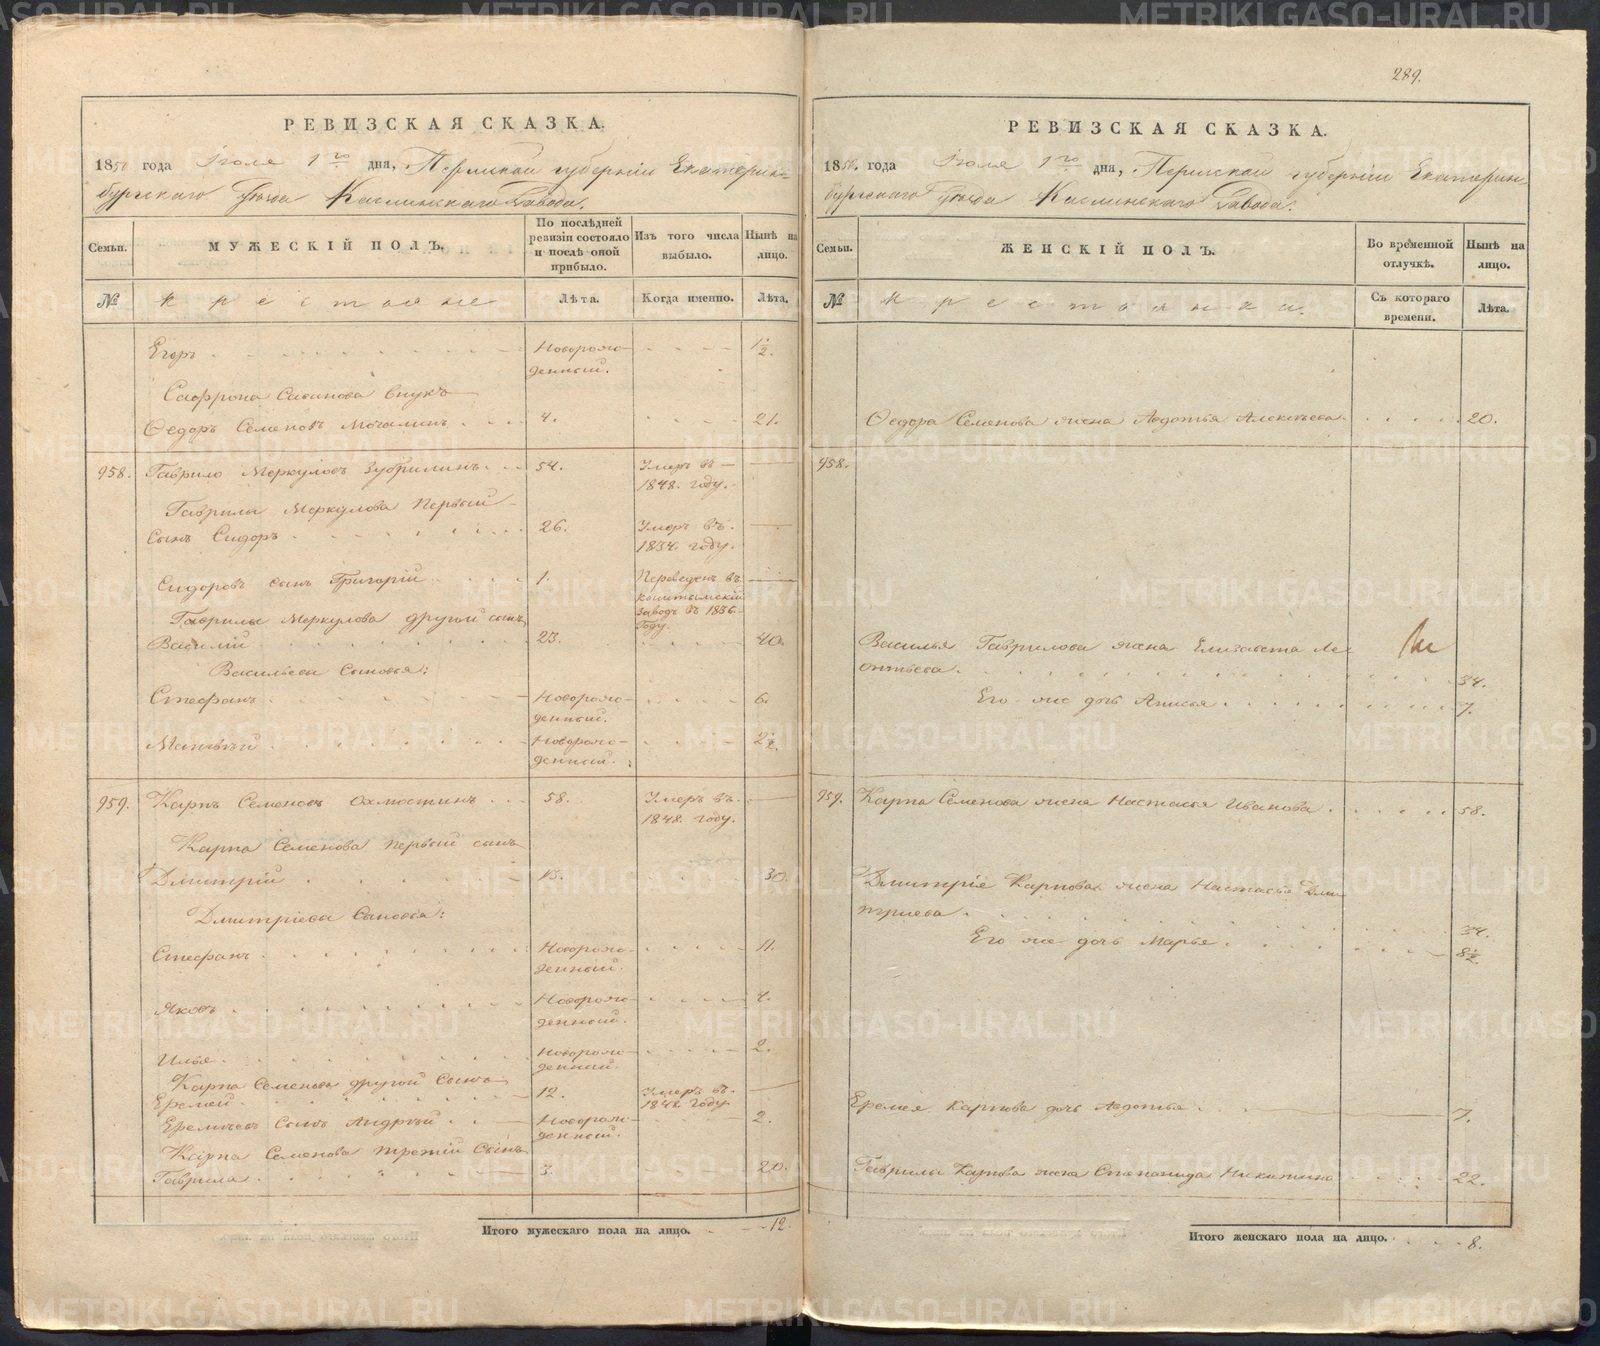 289.
РЕВИЗСКАЯ СКАЗКА.
1850 года Іюля 1го дня, Пермской губерніи Екатерин-
бургскаго Уѣзда Каслинскаго Завода.
Семьи.
МУЖЕСКІЙ ПОЛЪ.
По послѣдней ревизіи состояло и послѣ оной прибыло.
Изъ того числа выбыло.
Нынѣ на лицо.
№
Крестьяне
Лѣта.
Когда именно.
Лѣта.
Егоръ Новорож- 1½
денный.
Сафрона Савинова внукъ
Ѳедоръ Семеновъ Мочалинъ 4. 21.
958. Гаврило Меркуловъ Зубрилинъ 54. Умеръ въ
1848. году.
Гаврилы Меркулова Первый
сынъ Сидоръ 26. Умеръ въ
1834. году.
Сидоровъ сынъ Григорій 1. Переведенъ въ
Кыштымскій
заводъ въ 1836.
Году.
Гаврилы Меркулова другой сынъ
Василій 23. 40.
Васильевы Сыновья:
Стефанъ Новорож- 6.
денный.
Матвѣй Новорож- 2½
денный.
959. Карпъ Семеновъ Охлюстинъ 58. Умеръ въ
1848. году.
Карпа Семенова первый сынъ
Дмитрій 13. 30.
Дмитріевы Сыновья:
Стефанъ Новорож- 11.
денный.
Яковъ Новорож- 4.
денный.
Илья Новорож- 2.
денный.
Карпа Семенова другой Сынъ
Еремей 12. Умеръ въ
1848. году.
Еремѣевъ Сынъ Андрей Новорож- 2.
денный.
Карпа Семенова третій Сынъ
Гаврила 3. 20.
Итого мужескаго пола на лицо. 12.
РЕВИЗСКАЯ СКАЗКА.
1850. года Іюля 1го дня, Пермской губерніи Екатерин
бургскаго Уѣзда Каслинскаго Завода.
Семьи.
ЖЕНСКІЙ ПОЛЪ.
Во временной отлучкѣ.
Нынѣ на лицо.
№
Крестьянки.
Съ котораго времени.
Лѣта.
Ѳедора Семенова жена Авдотья Алексѣева 20.
958.
Василья Гаврилова жена Елизавета Ле-
онтьева. 34.
Его же дочь Анисья 7.
959. Карпа Семенова жена Настасья Иванова 58.
Дмитріе Карпова жена Настасья Дми
тріева. 34.
Его же дочь Марья. 8½
Еремея Карпова дочь Авдотья 7.
Гаврилы Карпова жена Степанида Никитина 22.
Итого женскаго пола на лицо. 8.
METRIKI.GASO-URAL.RU